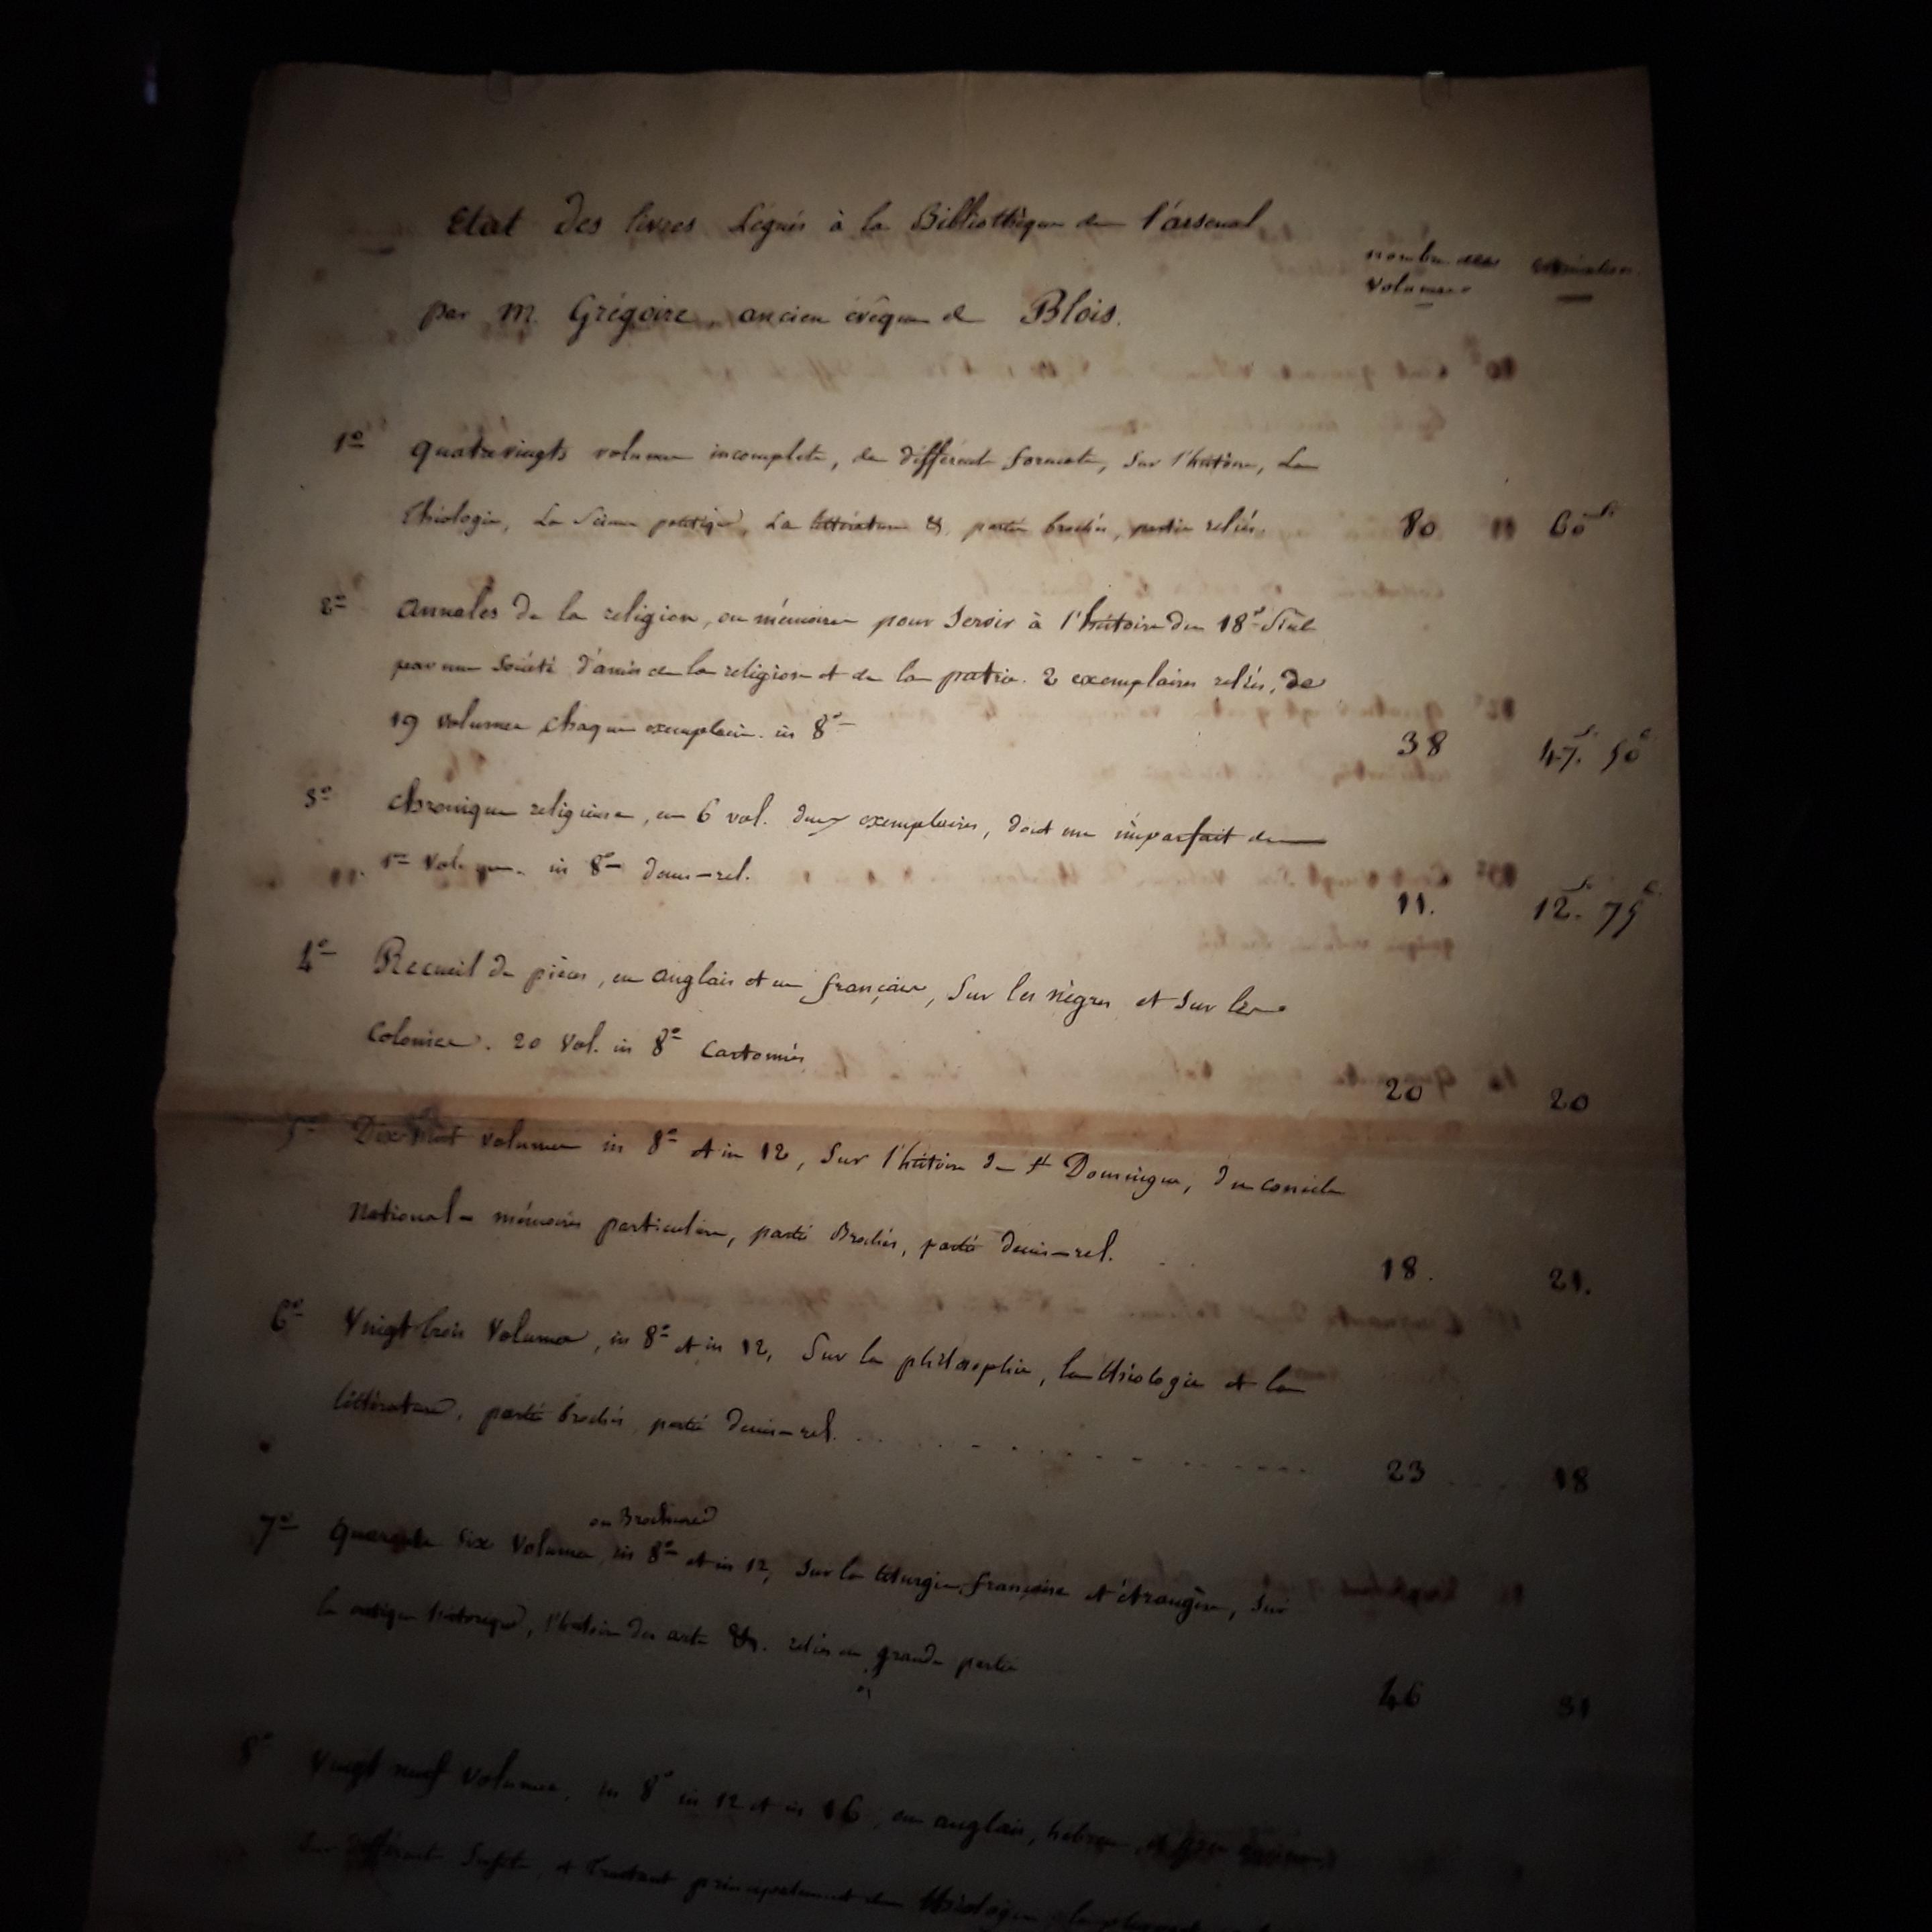 Etat des livres Légués à la Bibliothèque de l'arsenal
par M. Grégoire, ancien évêque de Blois.
nombre des
volumes
estimation
1º quatrevingts volumes incomplets, de différents formats, Sur l'histoire, La
Théologie, La Science politique, La littérature &. partie brochés, partie reliés. 80 60 f.
2º annales de la religion, ou mémoires pour Servir à l'histoire du 18e Siècle
par une Société d'amis de la religion et de la patrie. 2 exemplaires reliés, de
19 volumes chaque exemplaire. in 8º 38 47 f. 50 c
3º chronique religieuse, en 6 vol. deux exemplaires, dont un imparfait du
1er vol. in 8º demi-rel. 11. 12 f. 75 c
4º Recueil de pièces, en anglais et en français, Sur les nègres et Sur les
Colonies. 20 Vol. in 8º Cartonnés 20 20
5º Dix huit volumes in 8º et in 12, Sur l'histoire de St Domingue, du concile
National - mémoires particuliers, partie Brochés, partie demi-rel. 18. 21.
6º Vingt trois Volumes, in 8º et in 12, Sur la philosophie, la théologie et la
littérature, partie brochés partie demi-rel. 23 18
ou Brochures
7º Quarante Six Volumes in 8º et in 12, Sur la liturgie française et étrangère, Sur
la critique historique, l'histoire des arts &. reliés en grande partie 46 31
8º Vingt neuf Volumes, in 8º in 12 et in 16, en anglais, hébreu,
Sur différents Sujets, et Traitant principalement de Théologie